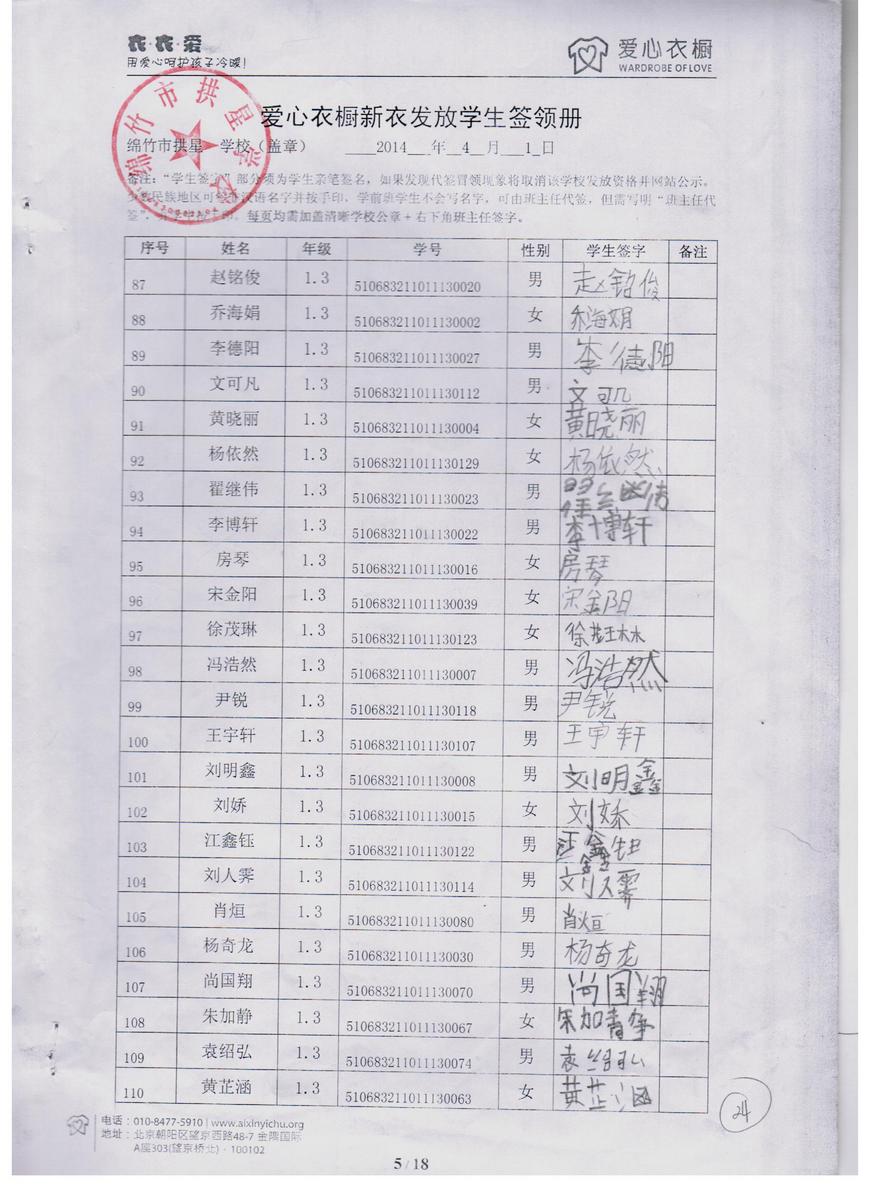 衣·衣·爱
用爱心呵护孩子冷暖!
爱心衣橱
WARDROBE OF LOVE
绵竹市拱星学校
爱心衣橱新衣发放学生签领册
绵竹市拱星 学校（盖章） ___2014___年__4__月___1_日
备注：“学生签字”部分须为学生亲笔签名，如果发现代签冒领现象将取消该学校发放资格并网站公示。
少数民族地区可签非汉语名字并按手印，学前班学生不会写名字，可由班主任代签，但需写明“班主任代
签”，每页均需加盖清晰学校公章+右下角班主任签字。
序号 姓名 年级 学号 性别 学生签字 备注
87 赵铭俊 1.3 510683211011130020 男 赵铭俊
88 乔海娟 1.3 510683211011130002 女 乔海娟
89 李德阳 1.3 510683211011130027 男 李德阳
90 文可凡 1.3 510683211011130112 男 文可凡
91 黄晓丽 1.3 510683211011130004 女 黄晓丽
92 杨依然 1.3 510683211011130129 女 杨依然
93 翟继伟 1.3 510683211011130023 男 翟继伟
94 李博轩 1.3 510683211011130022 男 李博轩
95 房琴 1.3 510683211011130016 女 房琴
96 宋金阳 1.3 510683211011130039 女 宋金阳
97 徐茂琳 1.3 510683211011130123 女 徐茂琳
98 冯浩然 1.3 510683211011130007 男 冯浩然
99 尹锐 1.3 510683211011130118 男 尹锐
100 王宇轩 1.3 510683211011130107 男 王宇轩
101 刘明鑫 1.3 510683211011130008 男 刘明鑫
102 刘娇 1.3 510683211011130015 女 刘娇
103 江鑫钰 1.3 510683211011130122 男 江鑫钰
104 刘人霁 1.3 510683211011130114 男 刘人霁
105 肖烜 1.3 510683211011130080 男 肖烜
106 杨奇龙 1.3 510683211011130030 男 杨奇龙
107 尚国翔 1.3 510683211011130070 男 尚国翔
108 朱加静 1.3 510683211011130067 女 朱加静
109 袁绍弘 1.3 510683211011130074 男 袁绍弘
110 黄芷涵 1.3 510683211011130063 女 黄芷涵
24
电话：010-8477-5910 | www.aixinyichu.org
地址：北京朝阳区望京西路48-7 金隅国际
A座303(望京桥北)·100102
5 / 18